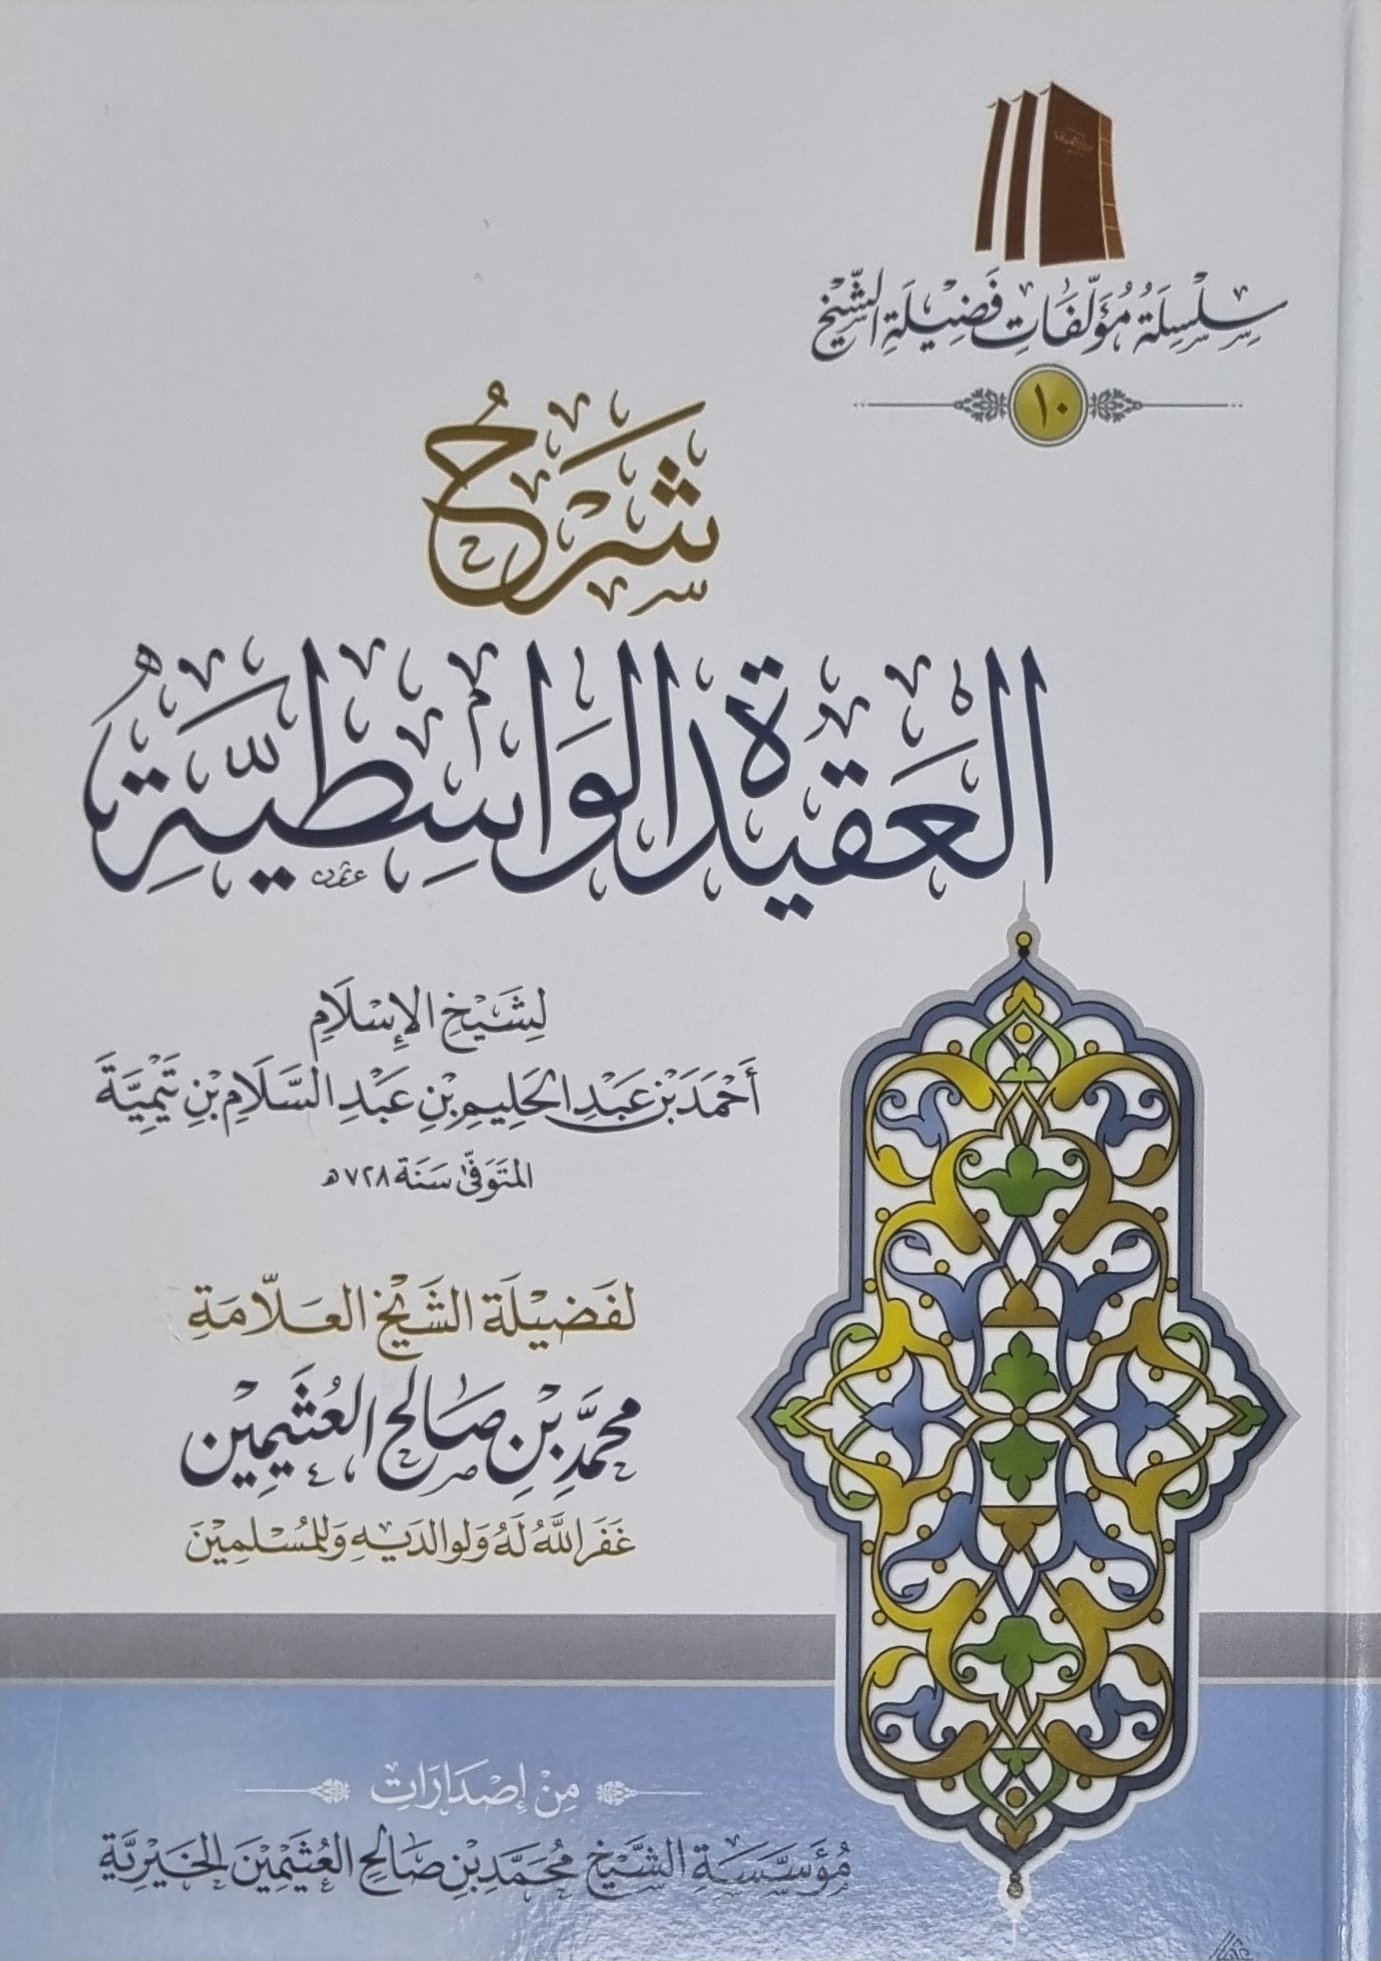 سِلْسِلَةُ مُؤَلَّفَاتِ فَضِيْلَةِ الشَّيْخِ
١٠
شَرْحُ
العَقِيْدَةِ الوَاسِطِيَّةِ
لِشَيْخِ الإِسْلَامِ
أَحْمَدَ بْنِ عَبْدِ الحَلِيمِ بْنِ عَبْدِ السَّلَامِ بْنِ تَيْمِيَّةَ
المتَوَفَّى سَنَة ٧٢٨ هـ
لفَضِيْلَة الشَّيْخ العَلَّامَةِ
محمَّد بْنِ صَالح العُثَيمِيْن
غَفَر اللَّهُ لَهُ وَلوالدَيهِ وَللمُسْلِمِيْنَ
مِنْ إِصْدَارَاتِ
مُؤَسَّسَةِ الشَّيْخِ مُحَمَّدِ بْنِ صَالِحٍ العُثَيْمِيْنَ الخَيْرِيَّةِ